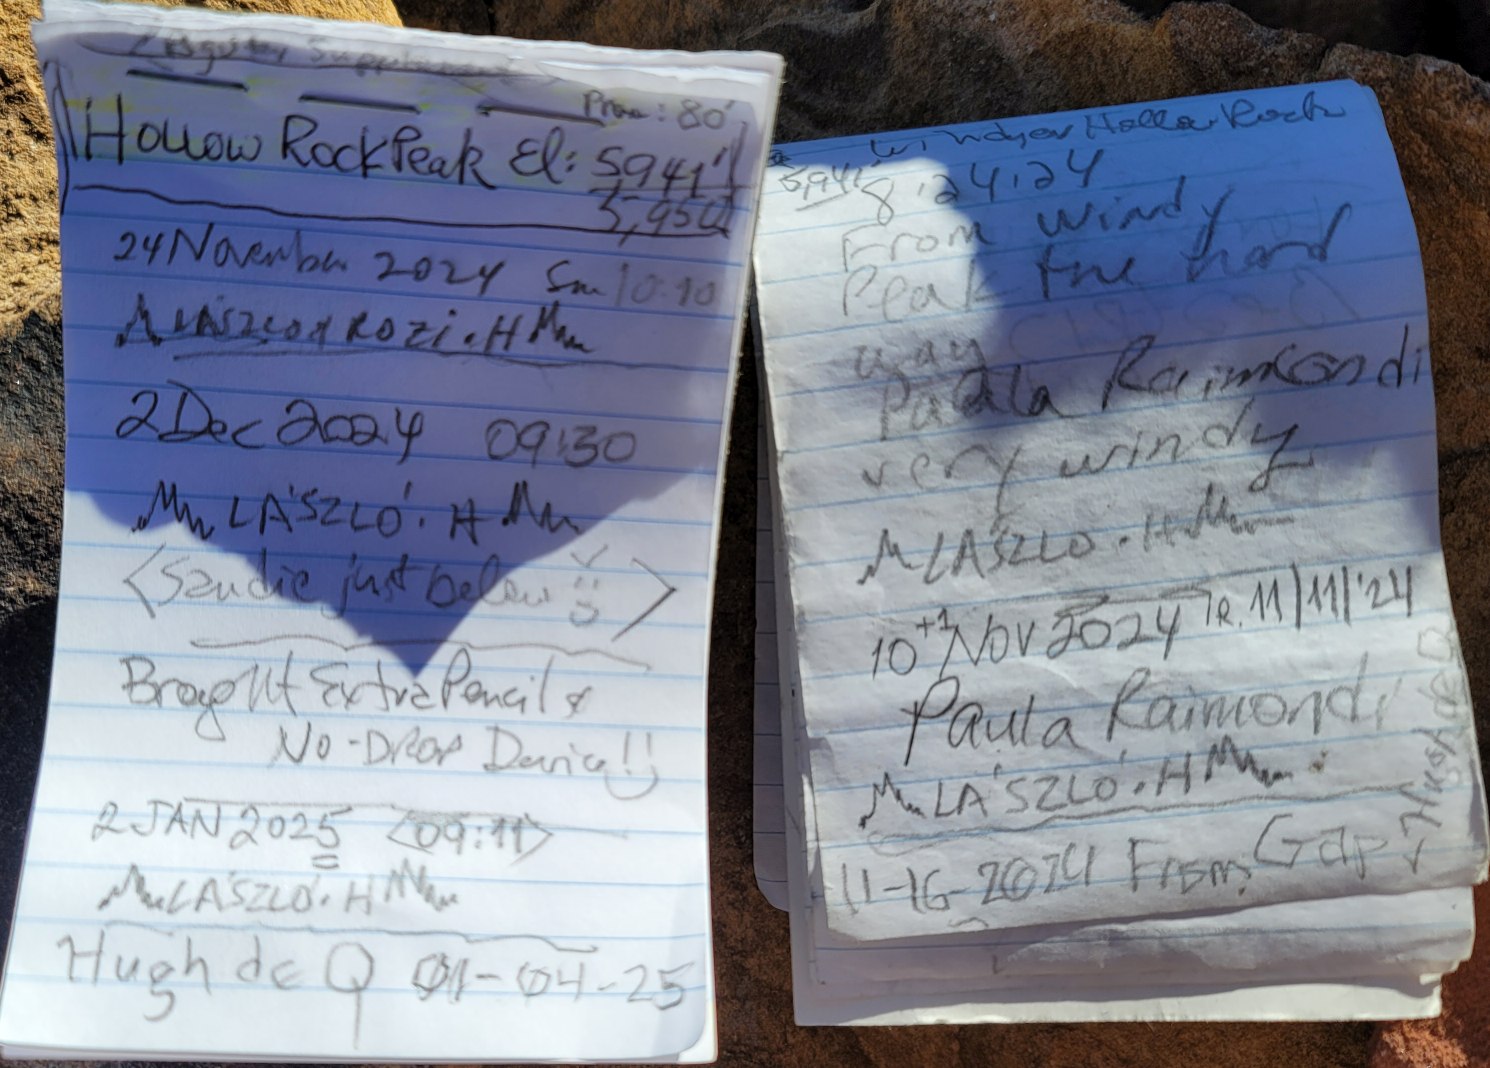 Prom: 80'
Hollow Rock Peak El: 5941'
5,950
24 November 2024 Sun 10:10
LÁSZLO & ROZI . H
2 Dec 2024 09:30
LÁSZLÓ . H
<Sandie just below
Brought Extra Pencil &
No-DROP Device!!
2 JAN 2025 <09:11>
LÁSZLÓ . H
Hugh de Q 01-04-25
Windy or Hollow Rock
5,941' 8.24.24
From windy
Peak the hard
way
Paula Raimondi
very windy
LÁSZLÓ . H
10+1 Nov 2024 11/11/'24
Paula Raimondi
LÁSZLÓ . H
11-16-2024 From Gap
Hugh de Q